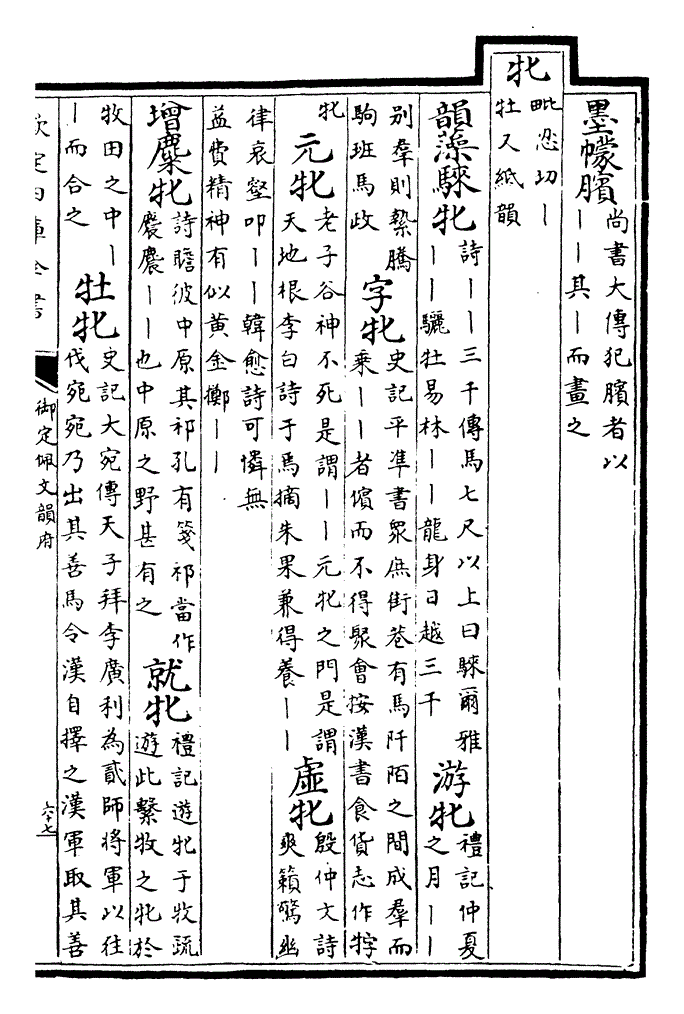 墨幪臏尚書大傳犯臏者以
丨丨其丨而畫之
牝毗忍切丨
牡又紙韻
韻藻騋牝詩丨丨三千傳馬七尺以上曰騋爾雅
丨丨驪牡易林丨丨龍身日越三千
游牝禮記仲夏
之月丨丨
别羣則縶騰
駒班馬政
字牝史記平準書衆庶街巷有馬阡陌之間成羣而
乘丨丨者儐而不得聚會按漢書食貨志作牸
牝
元牝老子谷神不死是謂丨丨元牝之門是謂
天地根李白詩于焉摘朱果兼得養丨丨
虛牝殷仲文詩
爽籟驚幽
律哀壑叩丨丨韓愈詩可憐無
益費精神有似黄金擲丨丨
增麋牝詩瞻彼中原其祁孔有箋祁當作
麎麎丨丨也中原之野甚有之
就牝禮記遊牝于牧疏
遊此繫牧之牝於
牧田之中丨
丨而合之
牡牝史記大宛傳天子拜李廣利為貳師將軍以往
伐宛宛乃出其善馬令漢自擇之漢軍取其善
欽定四庫全書
御定佩文韻府
六十七